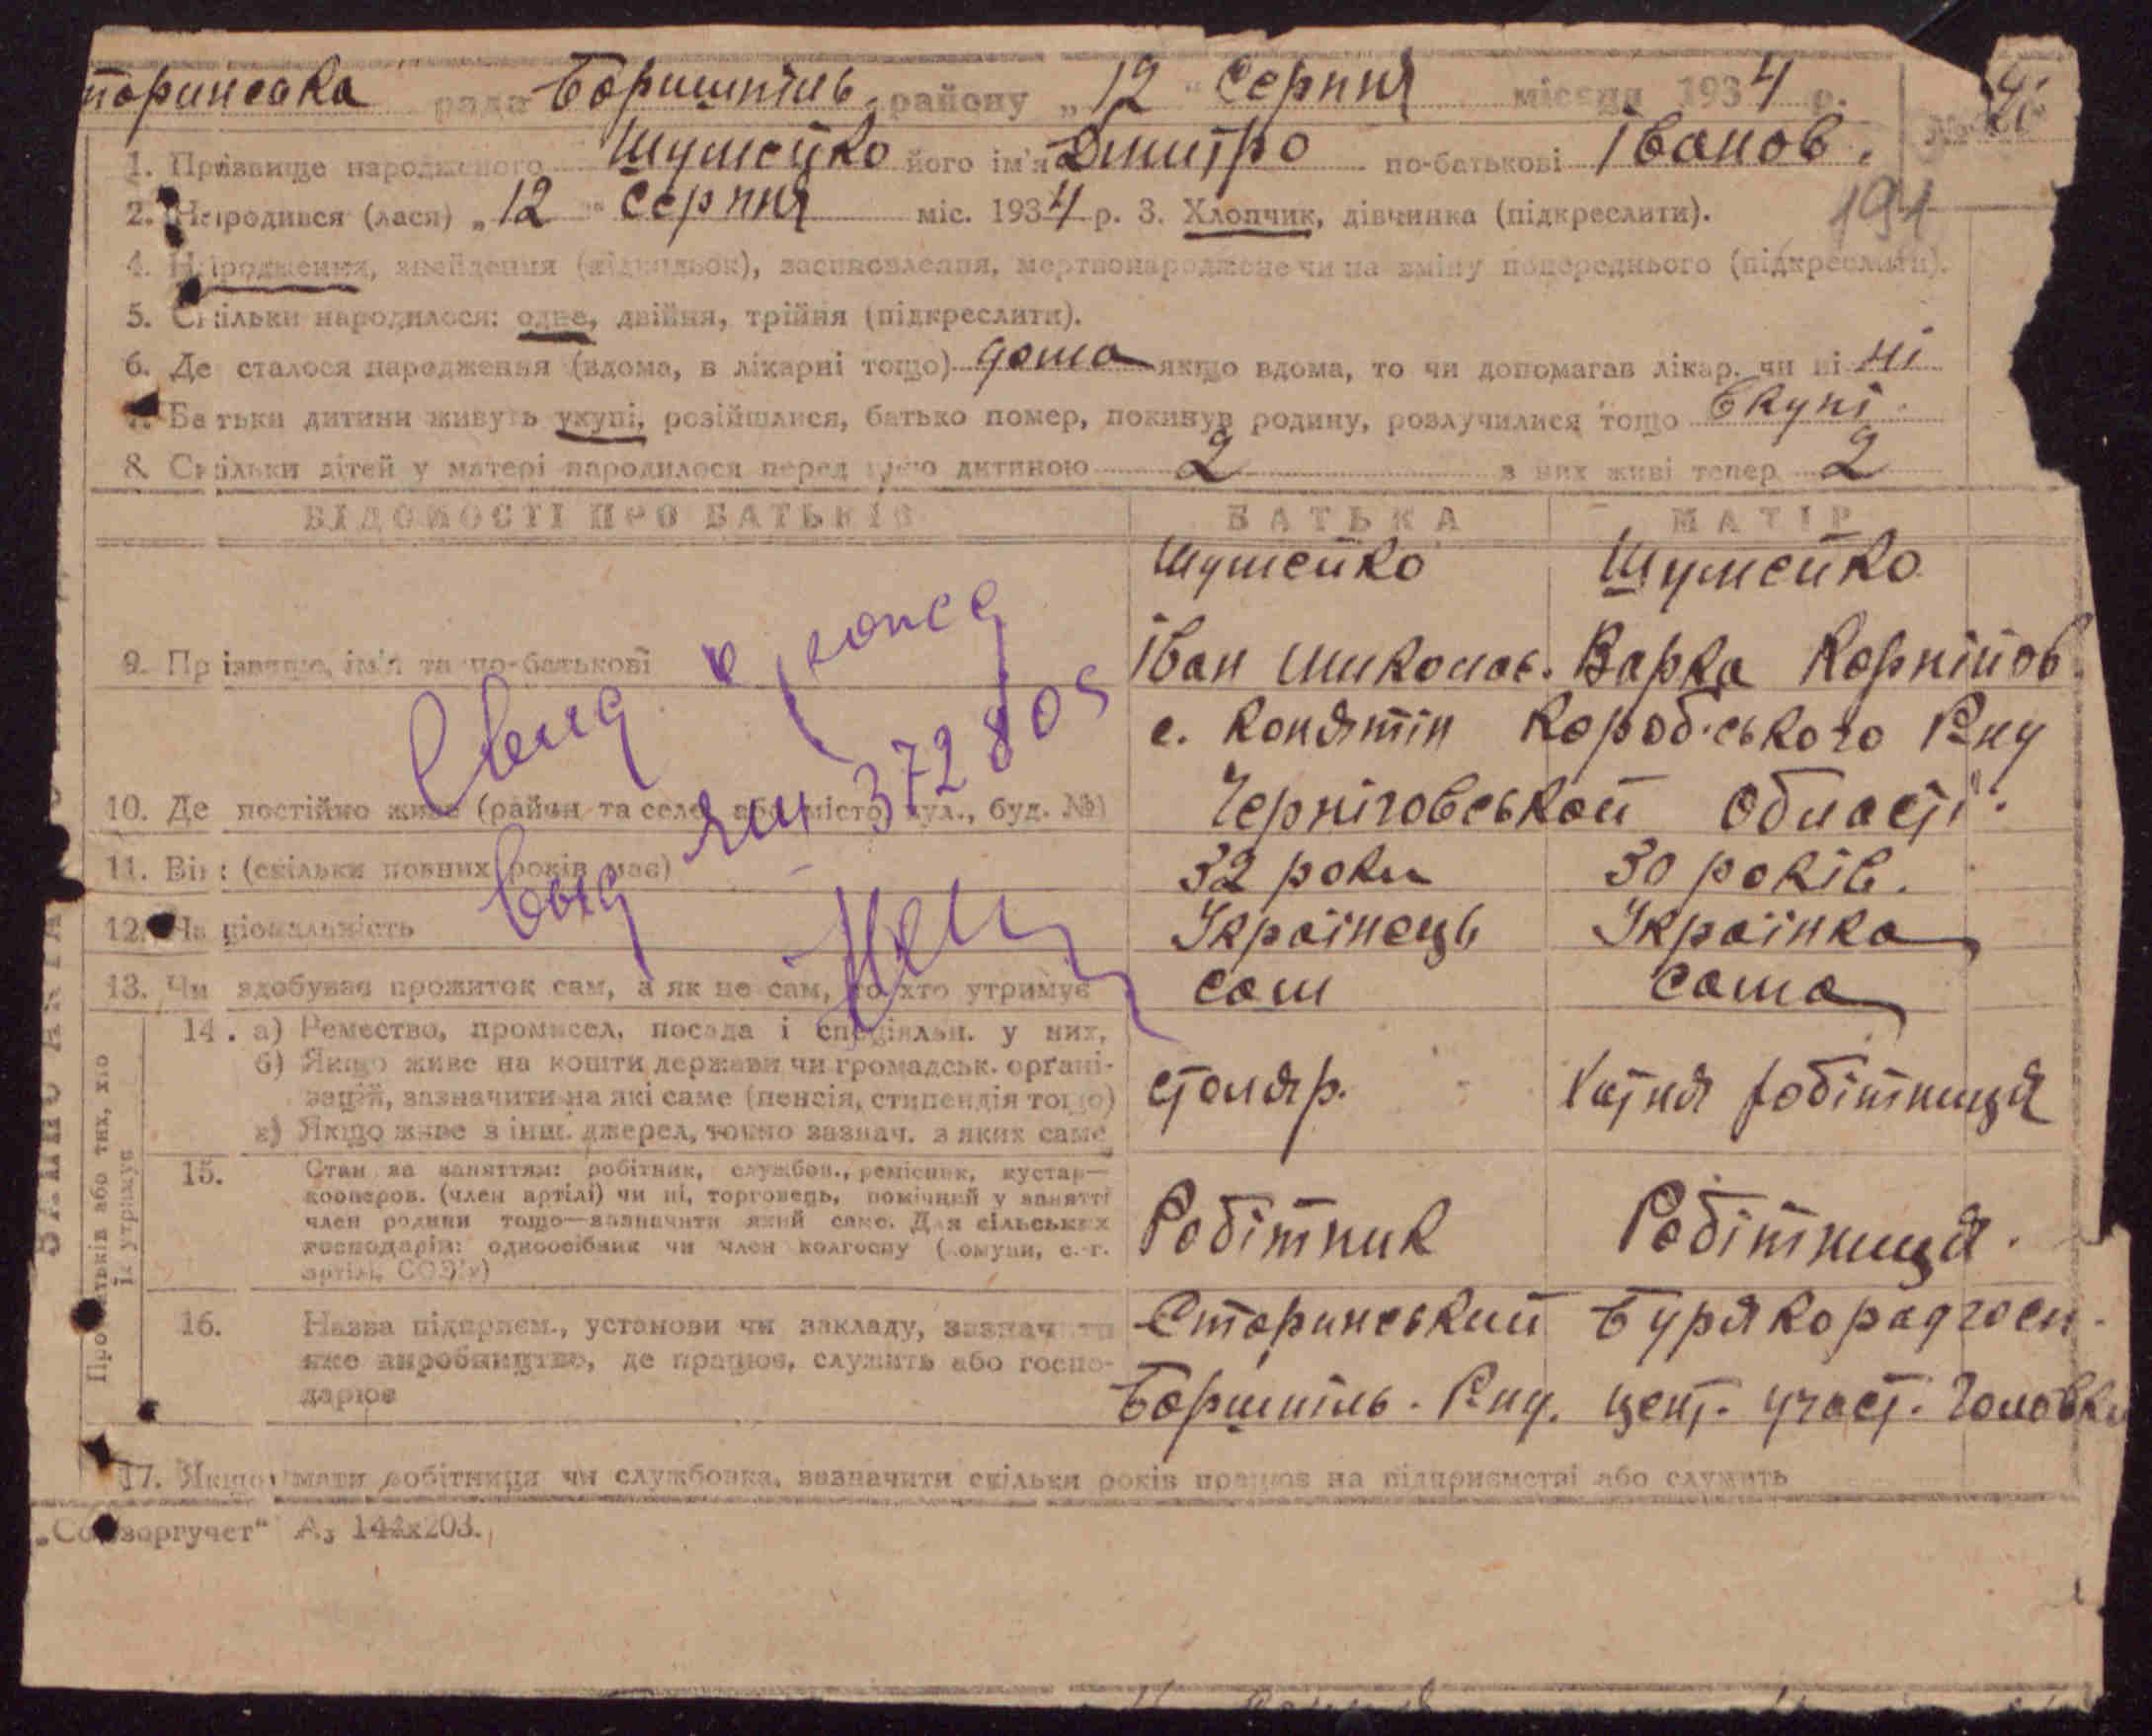 торинська рада Боришпіль. району „12" Серпня місяця 1934 р.
1. Прізвище народженого Шумейко його ім'я Дмитро по-батькові Іванов.
2. Народився (лася) „12" Серпня міс. 1934 р. 3. Хлопчик, дівчинка (підкреслити).
194
4. Народження, знайдення (підкидьок), засиновлення, мертвонароджене чи на зміну попереднього (підкреслити).
5. Скільки народилося: одне, двійня, трійня (підкреслити).
6. Де сталося народження (вдома, в лікарні тощо) дома якщо вдома, то чи допомагав лікар, чи ні ні
7. Батьки дитини живуть укупі, розійшлися, батько помер, покинув родину, розлучилися тощо вкупі.
8. Скільки дітей у матері народилося перед цією дитиною 2 з них живі тепер 2
ВІДОМОСТІ ПРО БАТЬКІВ БАТЬКА МАТІР
Шумейко Шумейко
9. Прізвище, ім'я та по-батькові Іван Миколов. Варка Корнійов.
с. Конятин Короб·ського Р-ну
10. Де постійно живе (район та село або місто, вул., буд. №) Чернiговської Області.
372805
11. Вік: (скільки повних років має) 32 роки 30 років.
12. Національність Українець Українка
13. Чи здобував прожиток сам, а як не сам, то хто утримує сам сама
Про батьків або тих, хто їх утримує
14. а) Ремество, промисел, посада і спеціяльн. у них,
б) Якщо живе на кошти держави чи громадськ. орґані-
зацій, зазначити на які саме (пенсія, стипендія тощо) столяр. Хатня робітниця
в) Якщо живе з інш. джерел, точно зазнач. з яких саме
15. Стан за заняттям: робітник, службов., ремісник, кустар—
кооперов. (член артілі) чи ні, торговець, помічний у занятті
член родини тощо—зазначити який саме. Для сільських
господарів: одноосібник чи член колгоспу (комуни, с.-г.
артілі, СОЗ'у) Робітник Робітниця.
16. Назва підприєм., установи чи закладу, зазначити Старинський Бурякорадгосп.
яке виробництво, де працює, служить або госпо-
дарює Боришпіль. Р-ну. цент. участ. Головки
17. Якщо мати робітниця чи службовка, зазначити скільки років працює на підприємстві або служить
„Союзоргучет" А₅ 144х203.